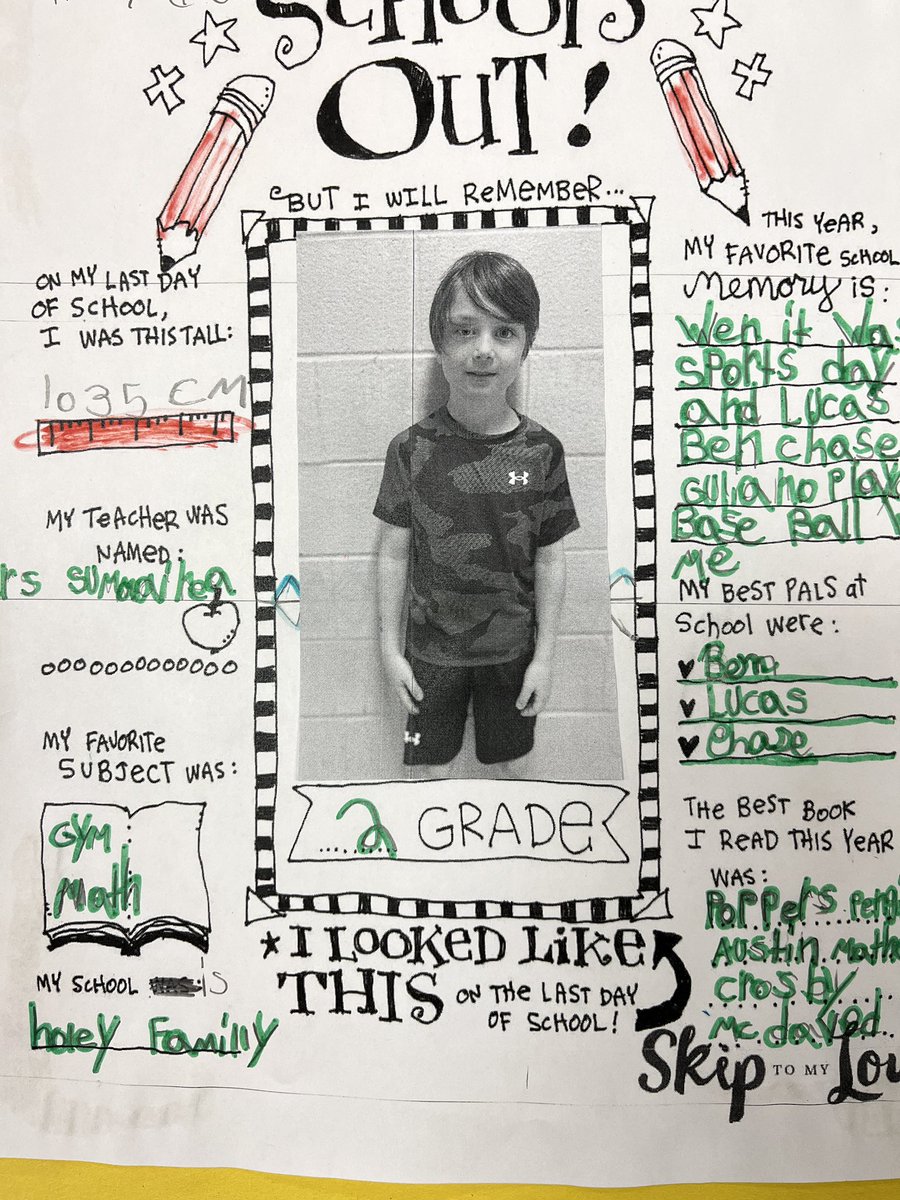 SCHOOL'S
OUT!
BUT I WILL REMEMBER...
ON MY LAST DAY
OF SCHOOL,
I WAS THIS TALL:
1035 CM
MY TEACHER WAS
NAMED:
rs
MY FAVORITE
SUBJECT WAS:
GYM
Math
MY SCHOOL IS
holey Familly
2 GRADE
★ I LOOKED LIKE
THIS ON THE LAST DAY
OF SCHOOL!
THIS YEAR,
MY FAVORITE SCHOOL
Memory is:
Wen it Was
sports day
and Lucas
Ben chase
Guliano Play
Base Ball
me
MY BEST PALS at
School were:
♥ Ben
♥ Lucas
♥ Chase
THE BEST BOOK
I READ THIS YEAR
WAS:
Poppers Peng
Austin Math
crosby
Mc.david
Skip TO MY Lou